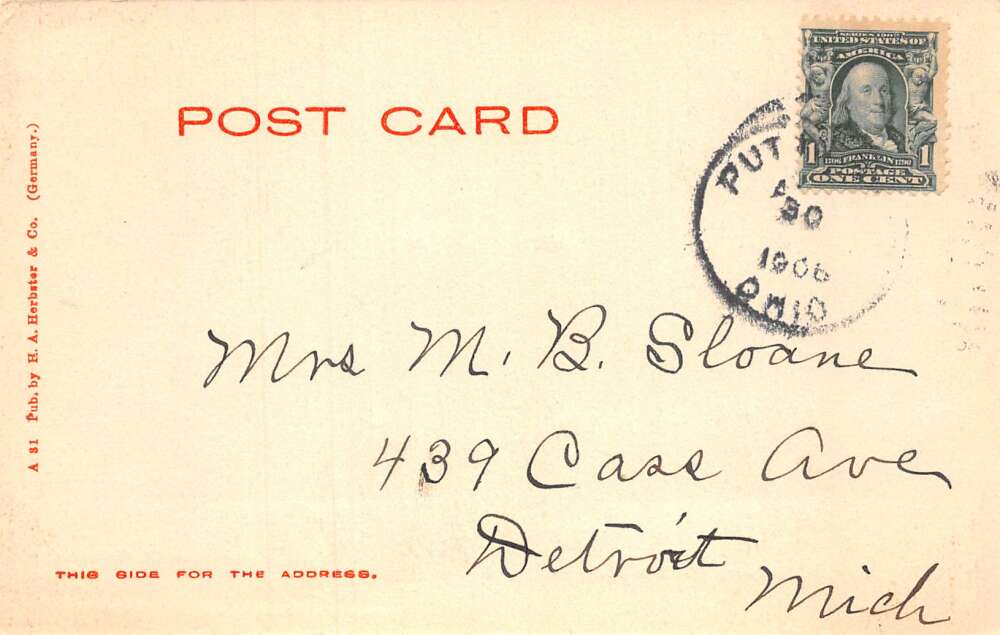 POST CARD
SERIES 1902
UNITED STATES OF
AMERICA
1 1706 FRANKLIN 1790 1
POSTAGE
ONE CENT
PUT
30
1906
OHIO
Mrs M. B. Sloane
439 Cass Ave
Detroit
Mich
THIS SIDE FOR THE ADDRESS.
A 31 Pub. by H. A. Herbster & Co. (Germany.)